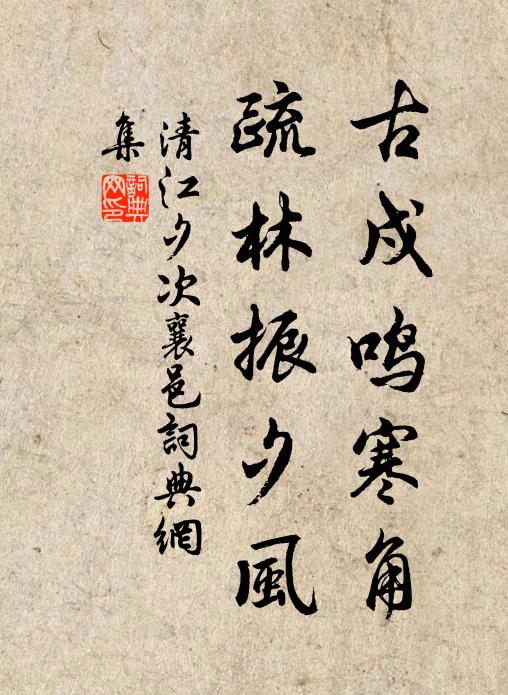 古戍鸣寒角
疏林振夕風
清江夕次襄邑詞典網
集
詞典
网印